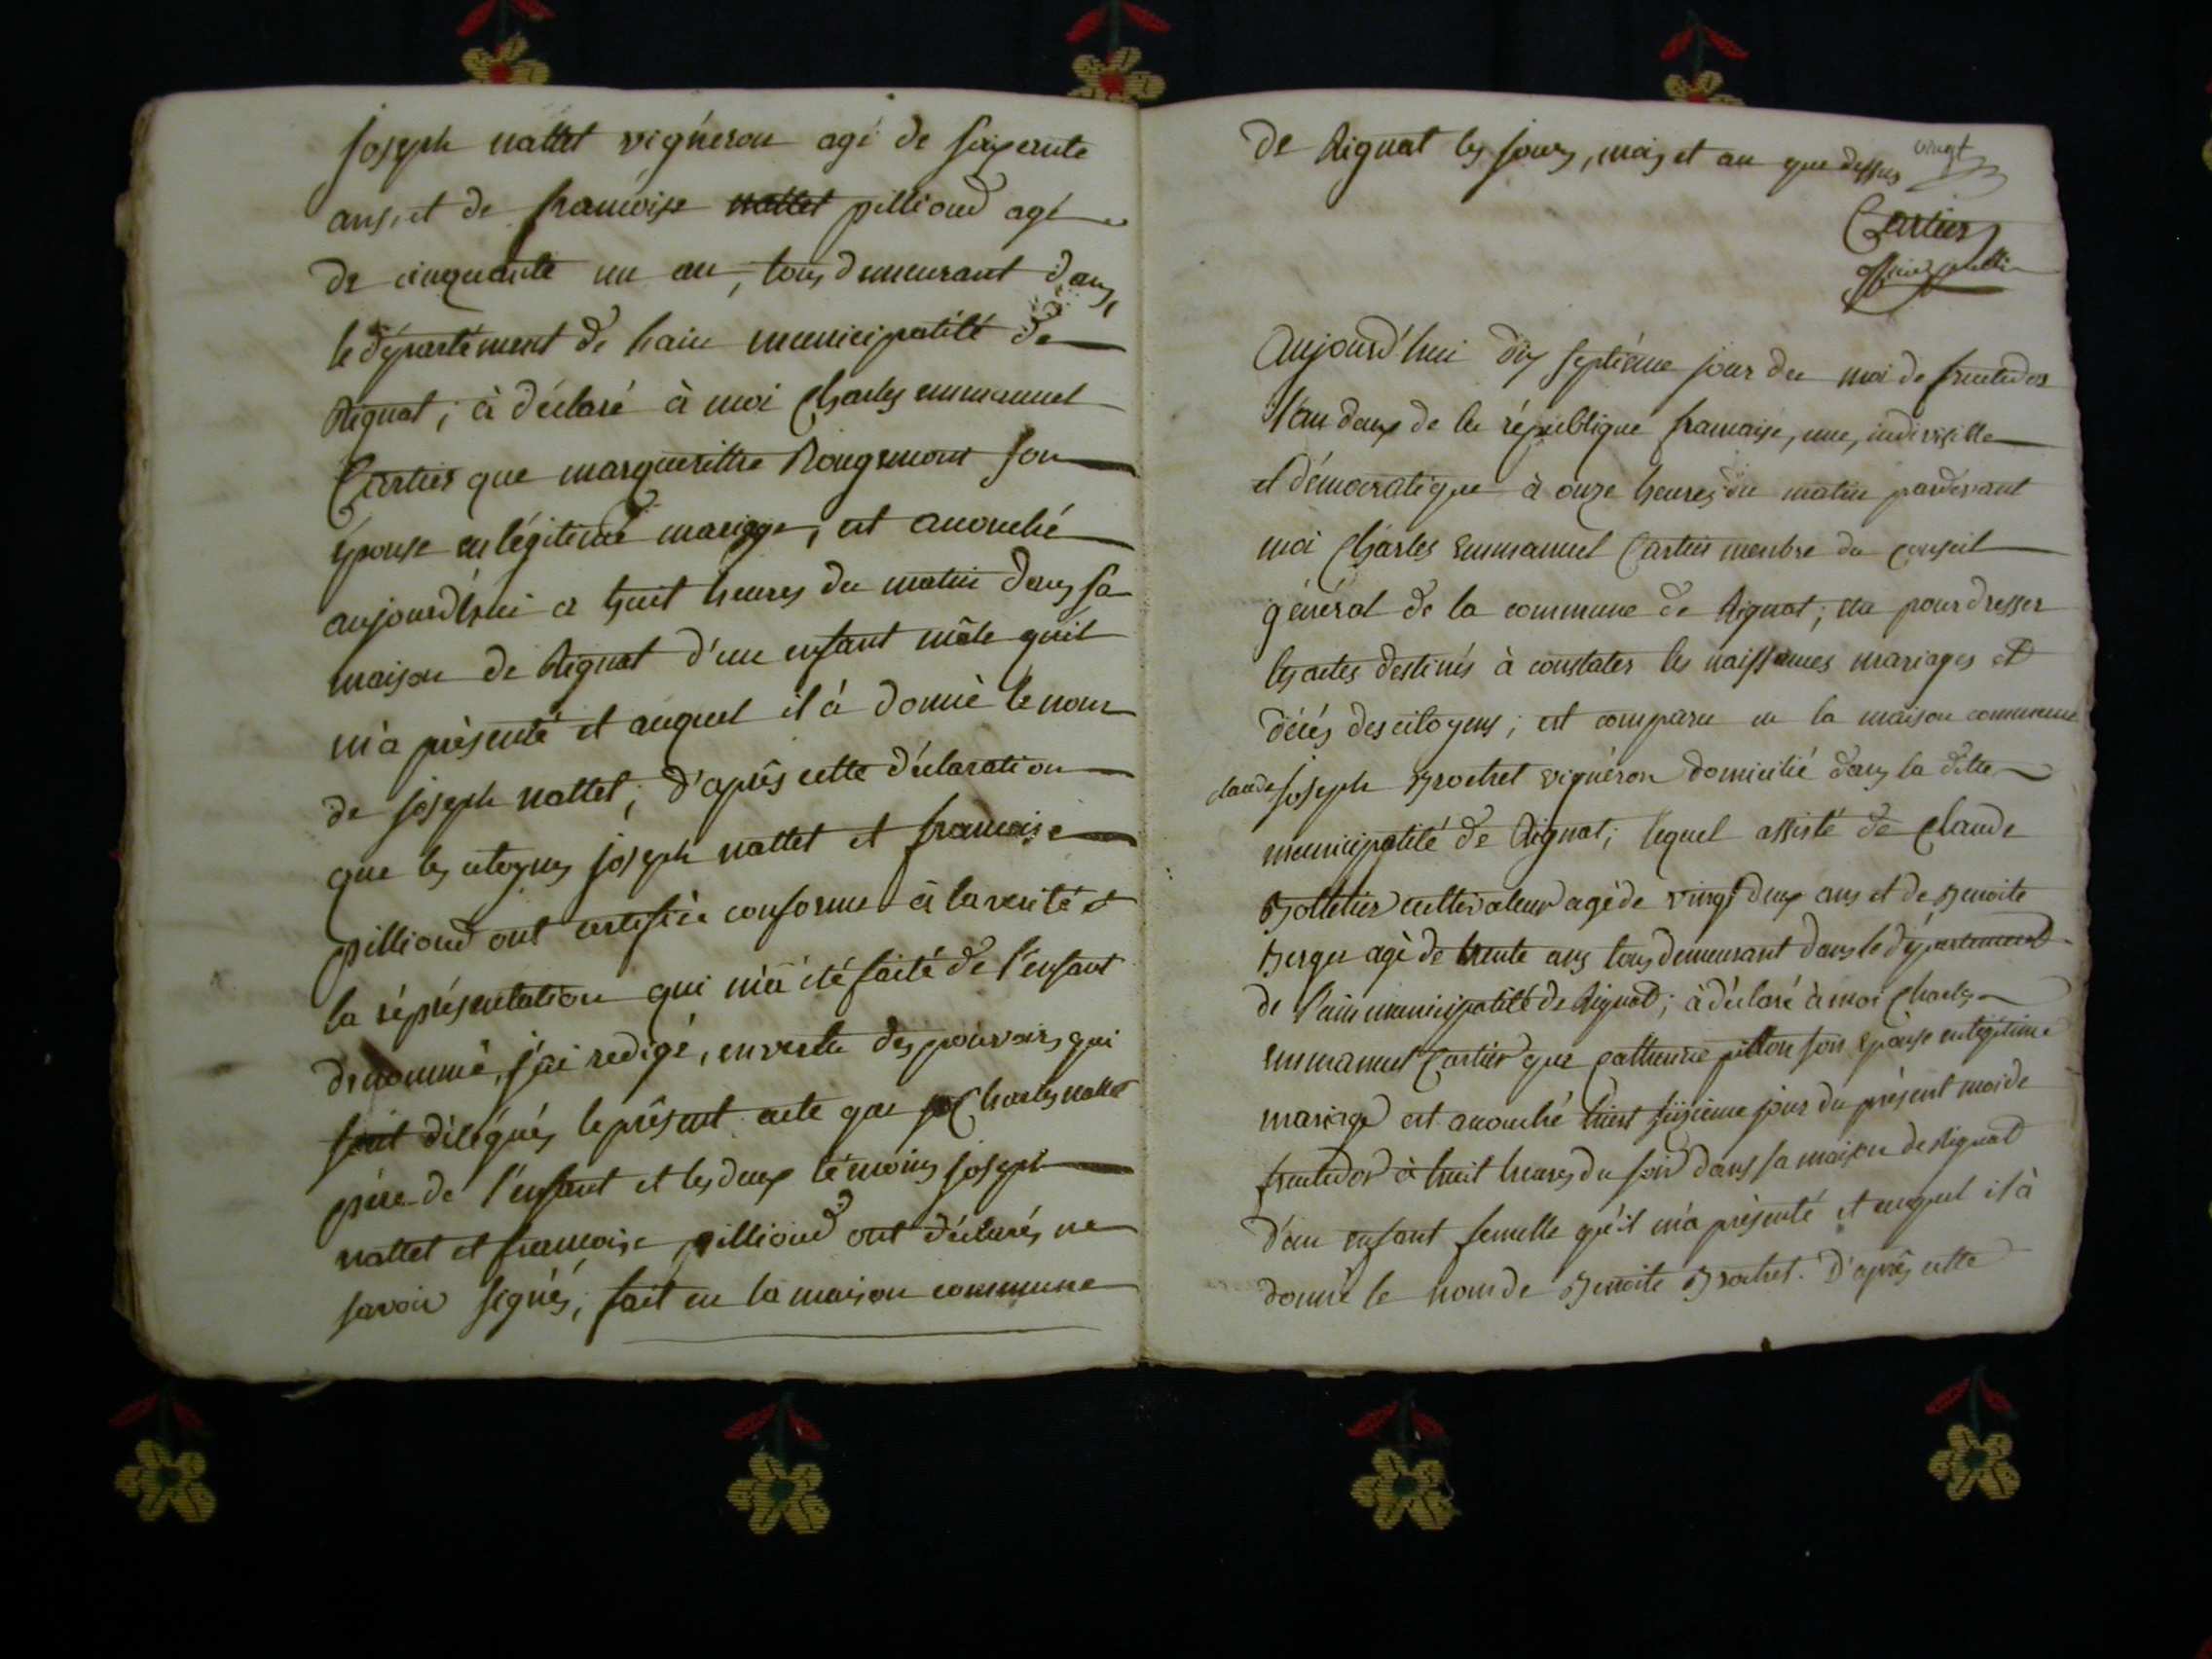 joseph nattet vigneron agé de soixente
ans, et de francoise nattet pillioud agé
de cinquante un an, tous demeurant dans
le département de l'ain municipalité de
Rignat; à déclaré à moi Charles emmanuel
Cartier que marguerithe Rougemont son
épouse en légitime mariage, est accouché
aujourd'hui a huit heures du matin dans sa
maison de Rignat d'un enfant mâle qu'il
m'a présenté et auquel il à donné le nom
de joseph nattet; d'après cette déclaration
que les citoyens joseph nattet et francoise
pillioud ont certifiée conforme à la verité et
la réprésentation qui m'a été faite de l'enfant
denommé, j'ai redigé, en vertu des pouvoirs qui
sont délégués le présent acte que Charles nattet
père de l'enfant et les deux témoins joseph
nattet et francoise pillioud ont déclarés ne
savoir signés; fait en la maison commune
de Rignat les jours, mois et an que dessus
vingt
Cartier
officier public
Aujourd'hui dix septième jour du moi de fructidor
l'an deux de la république francaise, une, indivisible
et démocratique à onze heures du matin pardevant
moi Charles Emmanuel Cartier membre du conseil
général de la commune de Rignat; élu pour dresser
les actes destinés à constater les naissances mariages et
décés des citoyens; est comparu en la maison commune
claude joseph Brochet vigneron domicilié dans la ditte
municipalité de Rignat; lequel assisté de Claude
cultivateur agé de vingt deux ans et de Benoite
Berger agé de trente ans tous demeurant dans le département
de l'ain municipalité de Rignat; à déclaré à moi Charles
emmanuel Cartier que Catherine pitton son Epouse en légitime
mariage est accouché hiert seizième jour du présent mois de
fructidor à huit heures du soir dans sa maison de Rignat
d'un enfant femelle qu'il m'a présenté et auquel il à
donné le nom de Benoite Brochet. D'après cette